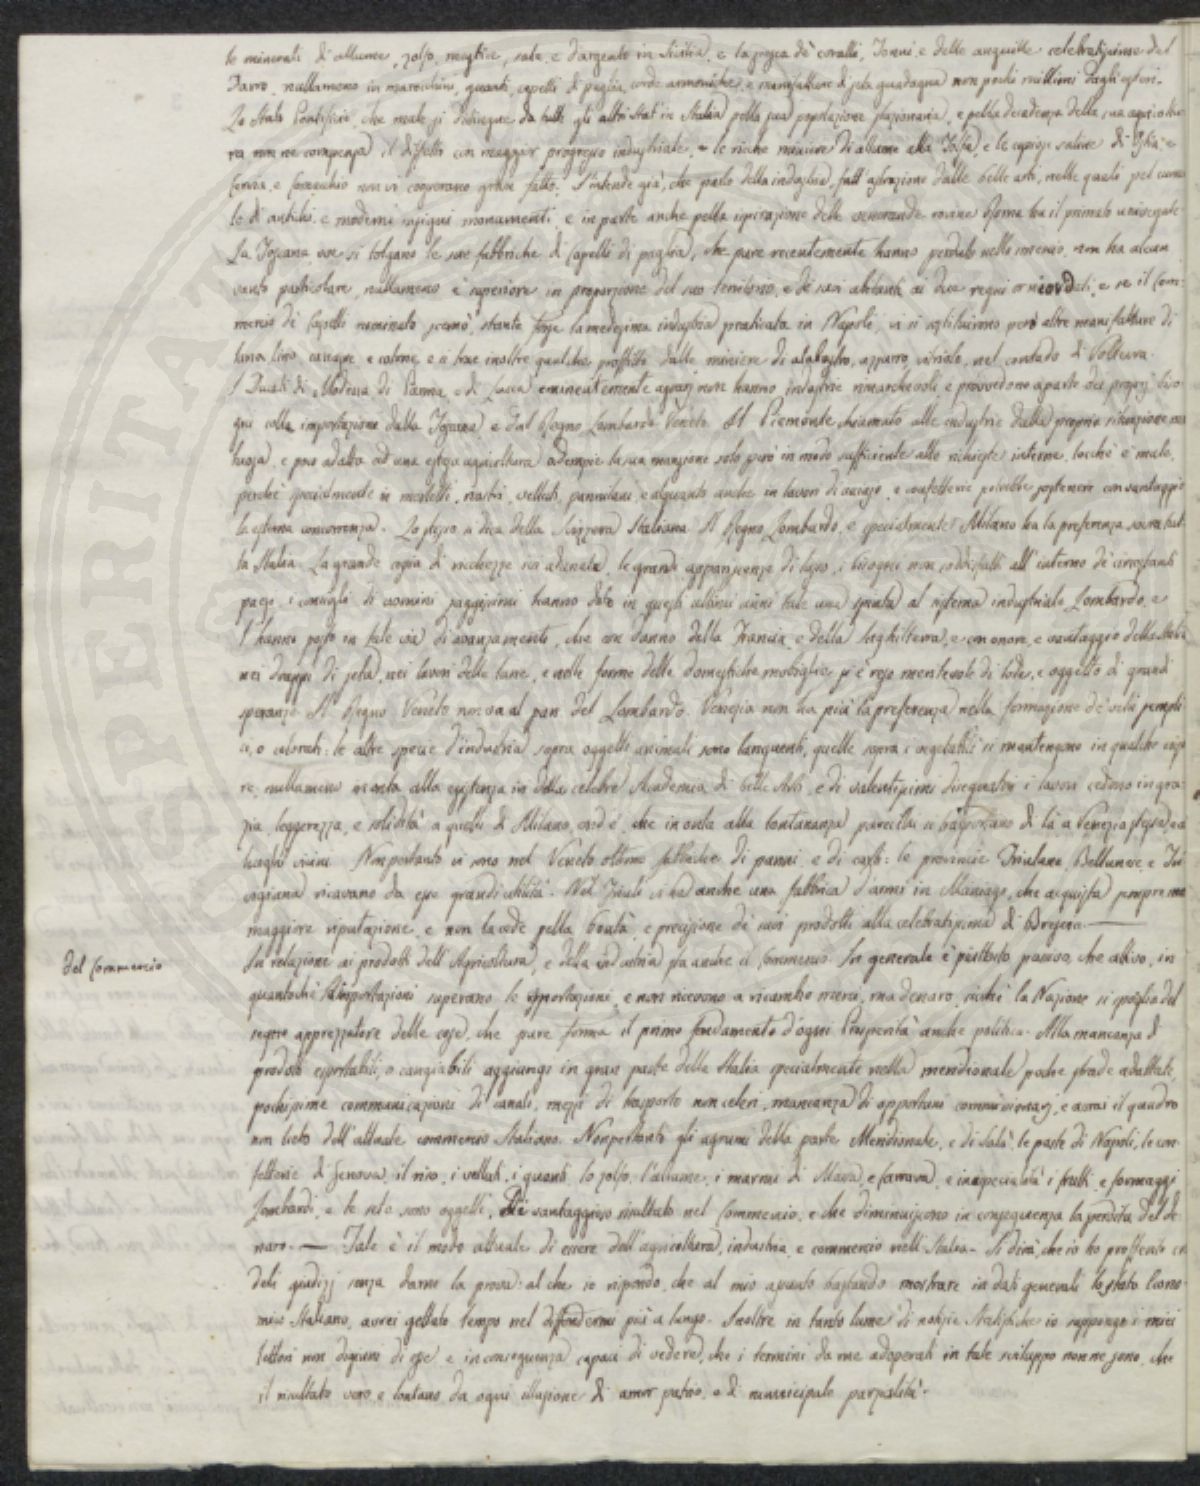 te minerali di allume, zolfo, sale, e d'argento in Sicilia, e la pesca de' coralli, Tonni, e delle anguille celebratissime del
nullameno in marocchini, guanti, capelli di paglia, corde armoniche, e manifatture di seta guadagna non pochi millioni dagli esteri.
Lo Stato Pontificio, che male si distingue da tutti gli altri Stati in Italia pella sua popolazione stazionaria, e pella decadenza della sua agricoltu
ra non ne compensa il difetto con maggior progresso industriale, le ricche miniere di allume alla Tolfa, e le copiose saline di Ostia e
Cervia, e Comacchio non vi cooperano gran fatto. S'intende già, che parlo della industria, fatt' astrazione dalle belle arti, nelle quali pel cumu
lo di antichi e moderni insigni monumenti, e in parte anche pella ispirazione delle venerande rovine Roma ha il primato universale
La Toscana ove si tolgano le sue fabbriche di Capelli di paglia, che pare recentemente hanno perduto nello smercio, non ha alcun
vanto particolare, nullameno è superiore in proporzione del suo territorio, e de' suoi abitanti ai due regni e se il Com-
mercio de' Capelli nominato scemò, stante forse la medesima industria praticata in Napoli, vi si sostituirono però altre manifatture di
lana, lino, canape, e cotone, e si trae inoltre qualche profitto dalle miniere di alabastro, azzurro, vitriolo, nel contado di Volterra.
I Ducati di Modena di Parma, e di Lucca eminentemente agrarj non hanno industrie rimarchevoli, e provvedono a parte dei proprj biso
gni colla importazione dalla Toscana, e dal Regno Lombardo Veneto. Il Piemonte chiamato alle industrie dalla propria situazione mon
tuosa, e poco adatta ad una estesa agricoltura adempie la sua mansione solo però in modo sufficiente alle richieste interne, locchè è male,
perchè specialmente in merletti, nastri, velluti, pannilani e alquanto anche in lavori di acciajo, e confetterie potrebbe sostenere con vantaggio
la esterna concorrenza. Lo stesso si dica della Svizzera Italiana. Il Regno Lombardo, e specialmente Milano ha la preferenza sovra tut
ta Italia. La grande copia di ricchezze ivi adunata, le grandi apparenze di lusso, i bisogni non soddisfatti all' interno de' circostanti
paesi, i consigli di uomini saggissimi hanno dato in questi ultimi anni tale una spinta al sistema industriale Lombardo, e
l' hanno posto in tale via di avanzamento, che con danno della Francia, e della Inghilterra, e con onore, e vantaggio della Italia
nei drappi di seta, nei lavori delle lane, e nelle forme delle domestiche mobiglie si è reso meritevole di lode, e oggetto di grandi
speranze. Il Regno Veneto non va al pari del Lombardo. Venezia non ha più la preferenza nella formazione de' vetri sempli
ci, o colorati: le altre specie d'industria sopra oggetti animali sono languenti, quelle sopra i vegetabili si mantengono in qualche vigo
re, nullameno ad onta alla esistenza in detta celebre Accademia di Belle Arti, e di valentissimi disegnatori i lavori cedono in gra
zia, leggerezza, e solidità a quelli di Milano, ond'è, che in onta alla lontananza parecchi si trasportano di là a Venezia stessa, e a
luoghi vicini. Nonpertanto vi sono nel Veneto ottime fabbriche di panni, e di carte: le provincie Friulana, Bellunese e Tri
vigiana ricavano da esse grandi utilità. Nel Friuli vi ha anche una fabbrica d'armi in Maniago, che acquista sempre
maggiore riputazione, e non la cede pella bontà, e precisione de' suoi prodotti alla celebratissima di Brescia.
del Commercio
In relazione ai prodotti dell' Agricoltura, e della industria sta anche il Commercio. In generale è piuttosto passivo, che attivo, in
quantochè le importazioni superano le esportazioni, e non ricevono a ricambio merci, ma denaro, sicchè la Nazione si spoglia del
segno apprezzatore delle cose, che pure forma il primo fondamento d'ogni Prosperità anche politica. Alla mancanza di
prodotti esportabili, o cangiabili aggiungi in gran parte della Italia specialmente nella meridionale poche strade adattate,
pochissime communicazioni di canali, mezzi di trasporto non celeri, mancanza di opportuni commissionarj, e avrai il quadro
non lieto dell' attuale commercio Italiano. Nonpertanto gli agrumi della parte Meridionale, e di Salò, le paste di Napoli, le con
fetterie di Genova, il riso, i velluti, i guanti, lo zolfo, l'allume, i marmi di Massa, e Carrara, e in specialità i frutti, e formaggi
Lombardi, e le sete sono oggetti, di vantaggioso risultato nel Commercio, e che diminuiscono in conseguenza la perdita del de
naro. — Tale è il modo attuale di essere dell' agricoltura, industria, e commercio nell' Italia. Si dirà, che io ho profferito cru
deli giudizj senza darne la prova: al che io rispondo, che al mio assunto bastando mostrare in dati generali lo stato Econo
mico Italiano, avrei gettato tempo nel diffondermi più a lungo. Inoltre in tanto lume di notizie Statistiche io suppongo i miei
lettori non digiuni di esse e in conseguenza capaci di vedere, che i termini da me adoperati in tale sviluppo non ne sono, che
il risultato vero, e lontano da ogni illusione di amor patrio, e di municipale parzialità.